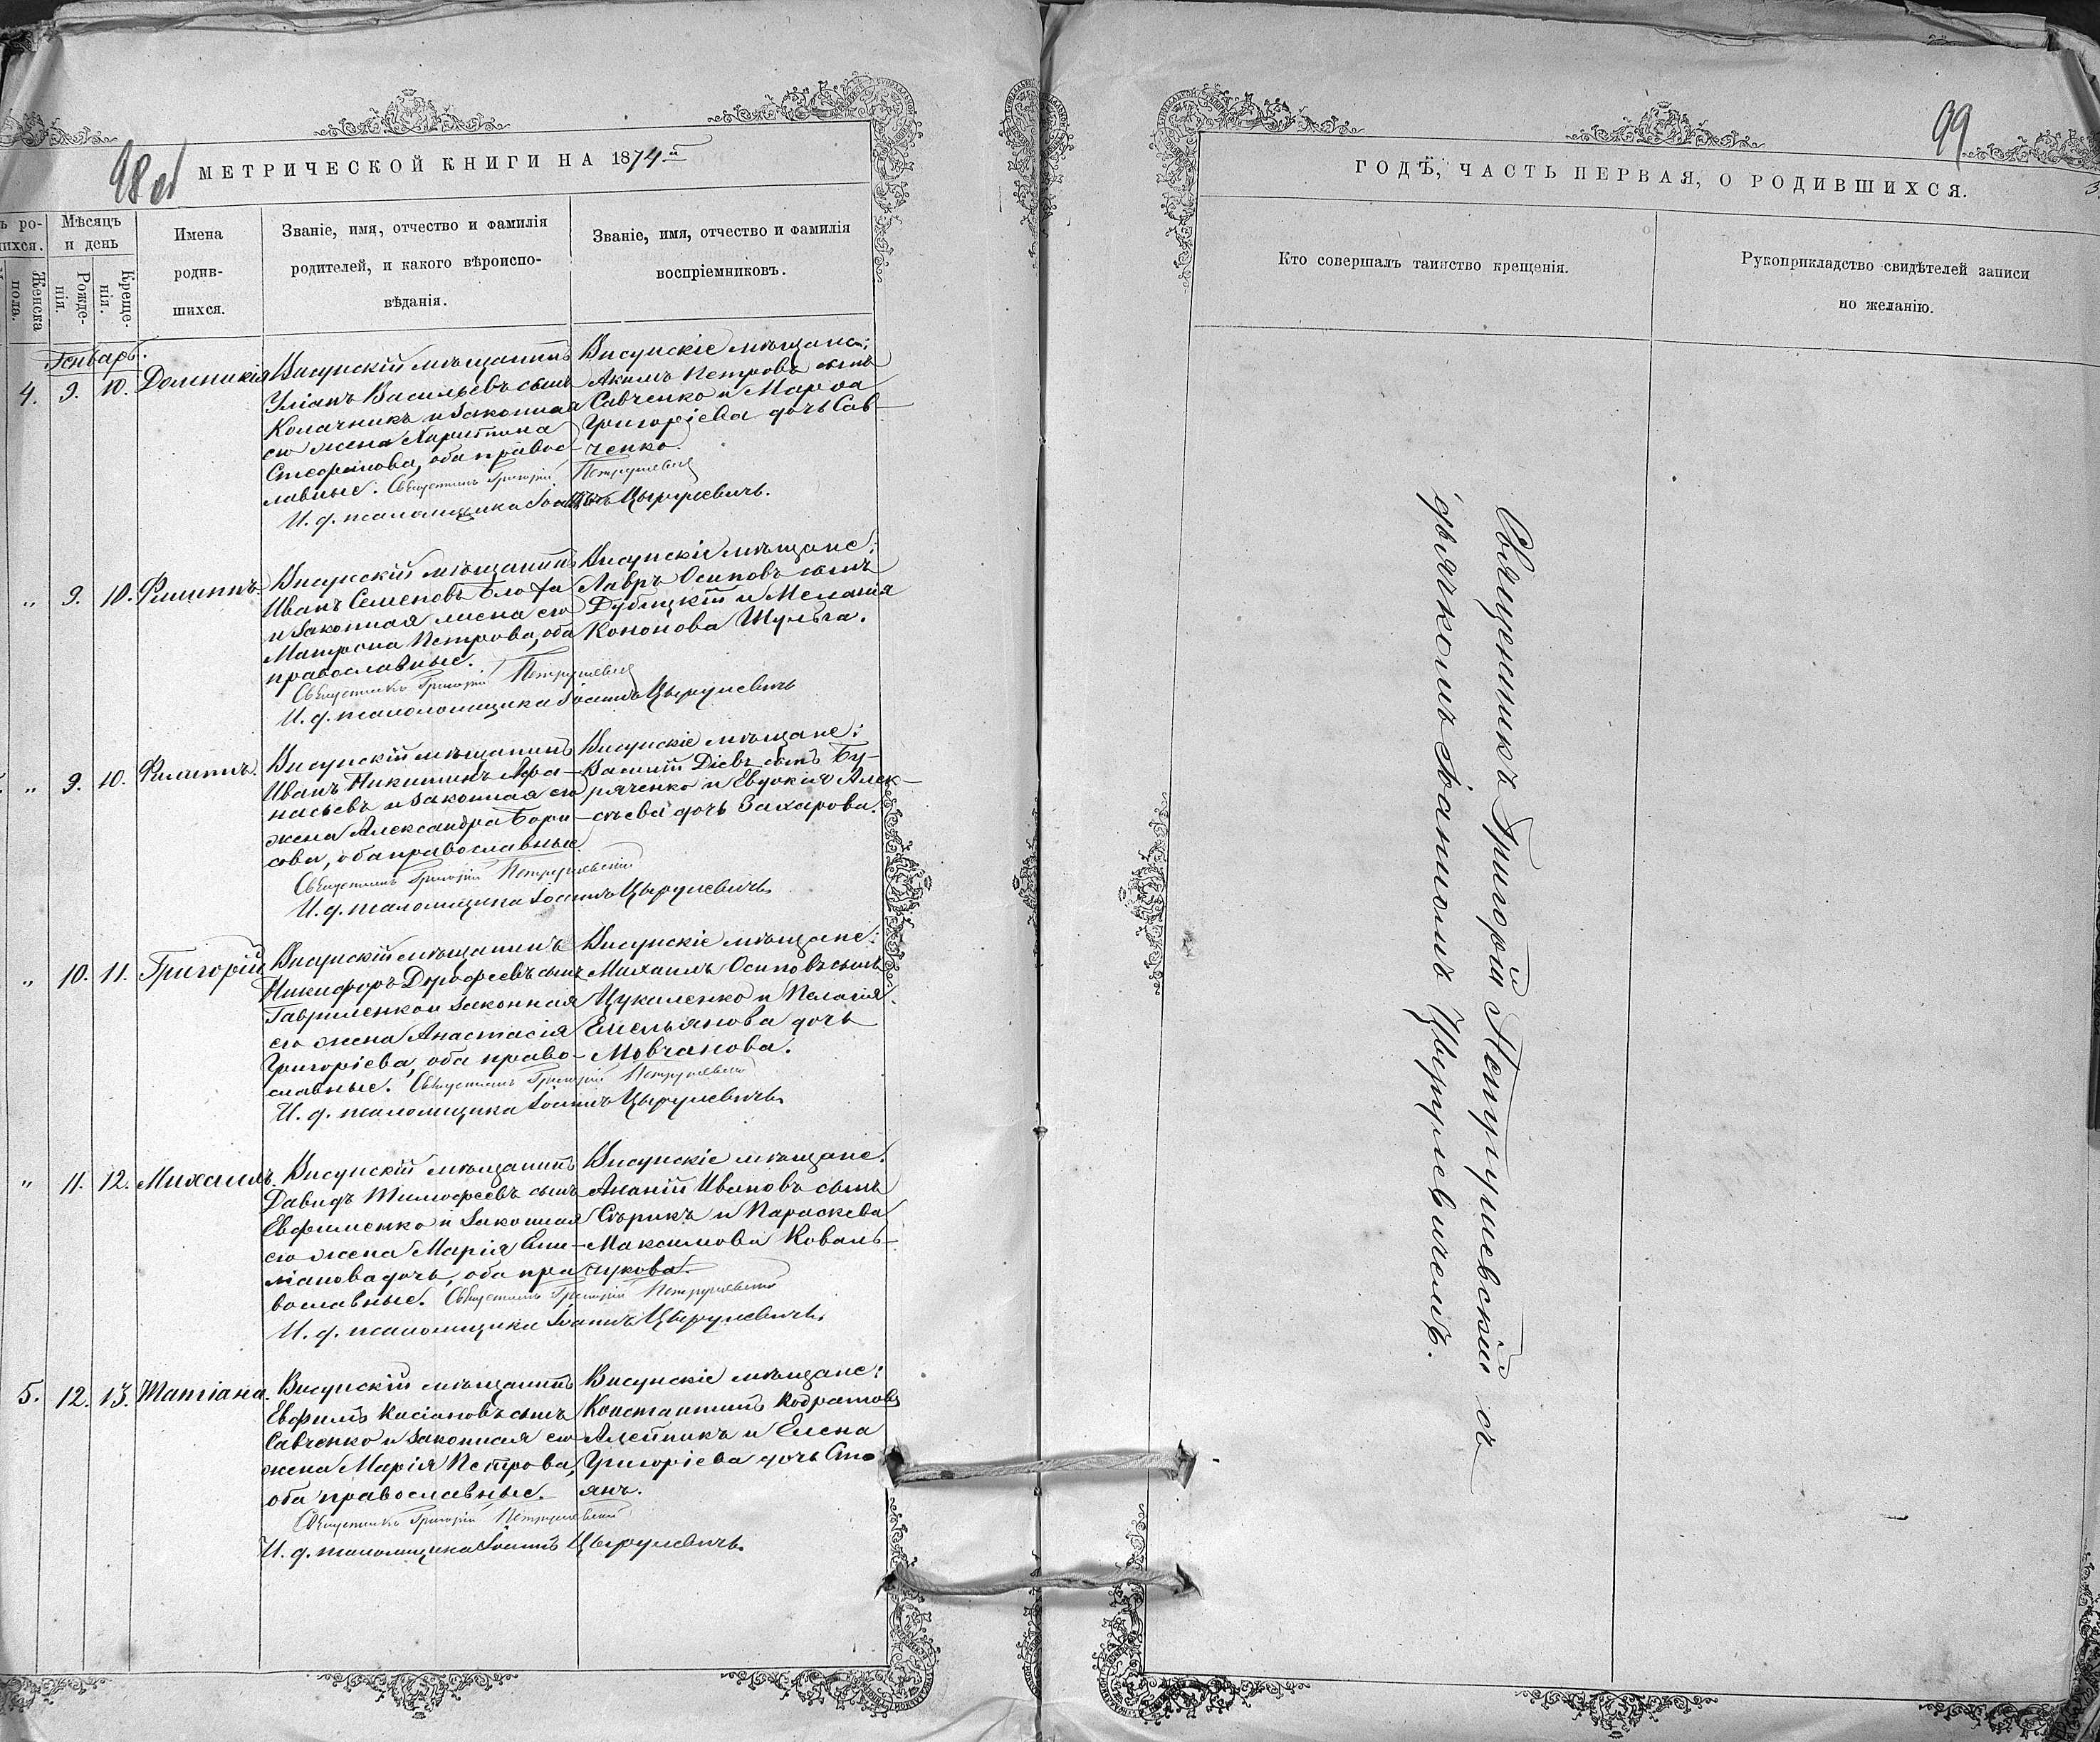 98 об
МЕТРИЧЕСКОЙ КНИГИ НА 1874й
ъ ро-
шихся.
Женска
пола.
Мѣсяцъ
и день
Рожде-
нія.
Креще-
нія.
Имена
родив-
шихся.
Званіе, имя, отчество и фамилія
родителей, и какого вѣроиспо-
вѣданія.
Званіе, имя, отчество и фамилія
воспріемниковъ.
Генварь.
4. 9. 10. Домникія
Висунскій мѣщанинъ
Уліанъ Васильевъ сынъ
Колачникъ и законная
его жена Харитина
Стефанова, оба правос-
лавные. Священникъ Григорій Петрушевскій
И. д. псаломщика Іоаннъ Цырулевичъ.
Висунскіе мѣщане:
Акимъ Петровъ сынъ
Савченко и Марѳа
Григоріева дочь Сав-
ченко.
„ 9. 10. Филиппъ
Висунскій мѣщанинъ
Иванъ Семеновъ
и законная жена его
Матрона Петрова, оба
православные.
Священникъ Григорій Петрушевскій
И. д. псаломщика Іоаннъ Цырулевичъ
Висунскіе мѣщане:
Лавръ Осиповъ сынъ
Дубицкій и Меланія
Кононова Шульга.
„ 9. 10. Филиппъ.
Висунскій мѣщанинъ
Иванъ Никитинъ Афа-
насьевъ и законная его
жена Александра Бори-
сова, оба православные
Священникъ Григорій Петрушевскій
И. д. псаломщика Іоаннъ Цырулевичъ.
Висунскіе мѣщане:
Василій Діевъ сынъ Бу-
ряченко и Евдокія Алек-
сѣева дочь Захарова.
„ 10. 11. Григорій
Висунскій мѣщанинъ
Никифоръ Дорофеевъ сынъ
Гавриленко и законная
его жена Анастасія
Григоріева, оба право-
славные. Священникъ Григорій Петрушевскій
И. д. псаломщика Іоаннъ Цырулевичъ.
Висунскіе мѣщане:
Михаилъ Осиповъ сынъ
Цукаленко и Пелагія
Емельянова дочь
Мовчанова.
„ 11. 12. Михаилъ.
Висунскій мѣщанинъ
Давидъ Тимофеевъ сынъ
Евфименко и законная
его жена Марія Еми-
ліанова дочь, оба пра
вославные. Священникъ Григорій Петрушевскій
И. д. псаломщика Іоаннъ Цырулевичъ.
Висунскіе мѣщане.
Ананій Ивановъ сынъ
Сѣрикъ и Параскева
Максимова Коваль-
чукова.
5. 12. 13. Татіана.
Висунскій мѣщанинъ
Евфимъ Касіановъ сынъ
Савченко и законная его
жена Марія Петрова,
оба православные.
Священникъ Григорій Петрушевскій
И. д. псаломщика Іоаннъ Цырулевичъ.
Висунскіе мѣщане:
Константинъ Кодратовъ
Алейникъ и Елена
Григоріева дочь Сто
янъ.
99
ГОДЪ, ЧАСТЬ ПЕРВАЯ, О РОДИВШИХСЯ.
Кто совершалъ таинство крещенія.
Рукоприкладство свидѣтелей записи
по желанію.
Священникъ Григорій Петрушевскій съ
дьячкомъ Іоанномъ Цырулевичемъ.